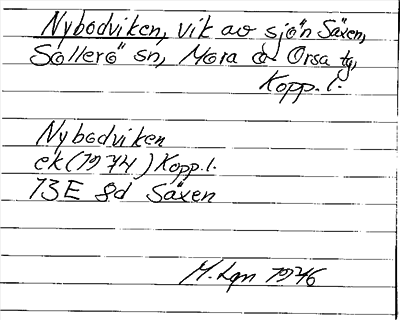 Nybodviken, vik av sjön Säxen,
Sollerö sn, Mora o Orsa tg,
Kopp. l.
Nybodviken
ek (1974) Kopp. l.
13E 8d Säxen
M. Lgn 1976